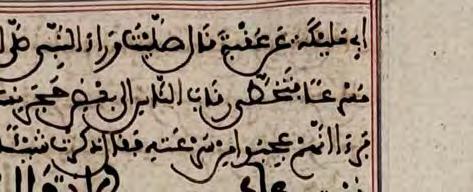 ابي مليكة عن عقبة قال صليت وراء النبي صلى
مسرعا فتخطى رقاب الناس الى بعض حجر
فرءا انهم عجبوا من سرعته فقال ذكرت شيئا